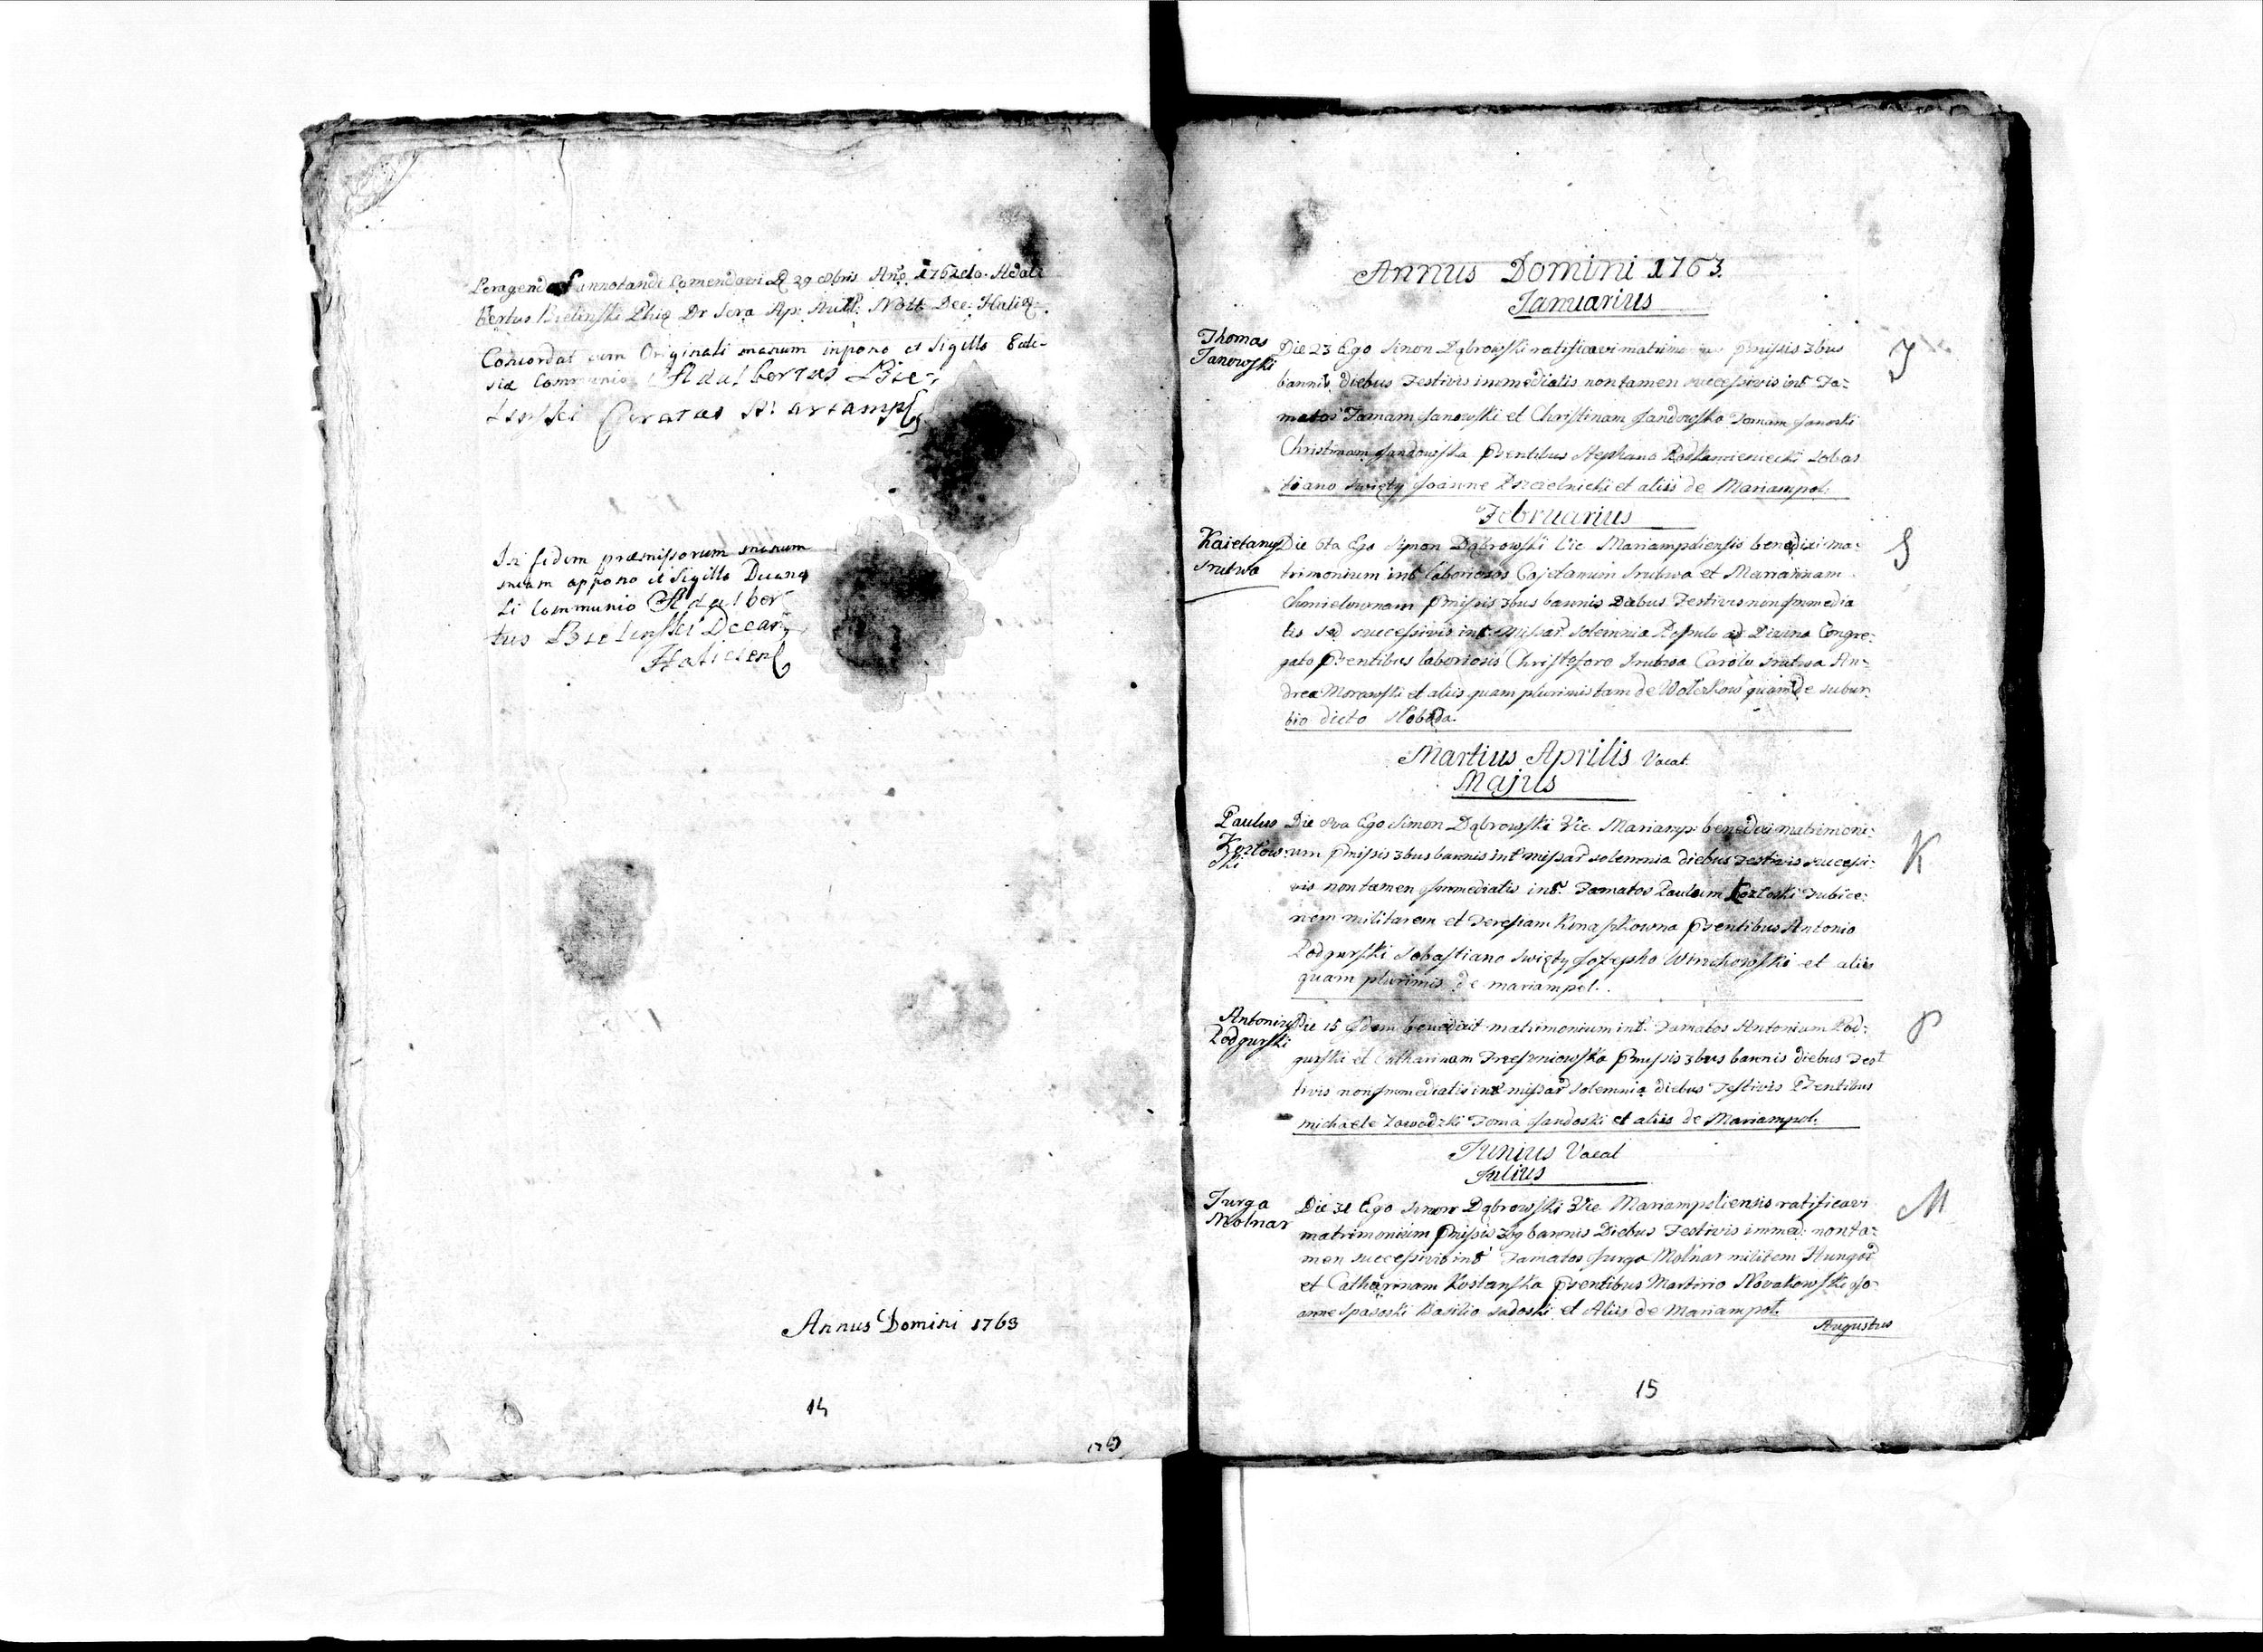 Peragenda annotandi Comendavi D 29 8bris Ano 1762do Adal
bertus Bielinski Phiæ Dr Sera Ap: Autt: Nott Dec: Halic:
Concordat cum Originali manum inpono et Sigillo Ecle-
siæ Communio Adalbertus Bie-
linski Curatus Mariamp
In fidem præmissorum manum
meam appono et Sigillo Decana
li Communio Adalber
tus Bielinski Decan
Halicien
Annus Domini 1763
14
Annus Domini 1763.
Januarius
Thomas
Janowski
Die 23 Ego Simon Dąbrowski ratificavi matrimo pmissis 3bus
bannis diebus Festivis immediatis non tamen successivis int Fa-
matos Tomam Janowski et Christinam Jandowska Tomam Janoski
Christinam Jandowska psentibus Stephano Podkamieniecki Sebas
tiano Swięty Joanne et aliis de Mariampol.
J
Februarius
Kaietanus
Srutwa
Die 6ta Ego Simon Dąbrowski Vic Mariampoliensis benedixi ma-
trimonium int laboriosos Cajetanum Srutwa et Mariannam
Chmielowonam pmissis 3bus bannis Diebus Festivis non Immedia
tis sed successivis int Missar solemnia Populo ad Divina Congre-
gato psentibus laboriosis Christoforo Srutwa Carolo Srutwa An-
drea Morawski et aliis quam plurimis tam de Wolczkow quam de subur
bio dicto Sloboda.
S
Martius Aprilis Vacat.
Majus
Paulus
Kozlow-
ski
Die 8va Ego Simon Dąbrowski Vic Mariamp: benedixi matrimoni-
um pmissis 3bus bannis int missar solemnia diebus Festivis successi-
vis non tamen Immediatis int. Famatos Paulum Kozloski Tubice-
nem militarem et Teresiam psentibus Antonio
Podgurski Sebastiano Swięty Josepho Winchowski et aliis
quam plurimis de mariampol.
K
Antonius
Podgurski
Die 15 Idem benedixit matrimonium int. Famatos Antonium Pod-
gurski et Catharinam pmissis 3bus bannis diebus Fest
tivis non Immediatis int missar solemnia diebus Festivis Psentibus
michaele Zawadzki Toma Jandoski et aliis de Mariampol.
P
Junius Vacat
Julius
Jurga
Molnar
Die 31 Ego Simon Dąbrowski Vic Mariampoliensis ratificavi
matrimonium pmissis 3bq bannis Diebus Festivis immed: non ta-
men successivis int Famatos Jurga Molnar militem Hungar
et Catharinam Kostanska psentibus Martino Novakowski Jo-
anne Spasoski Basilio Sadoski et Aliis de Mariampol.
M
Augustus
15